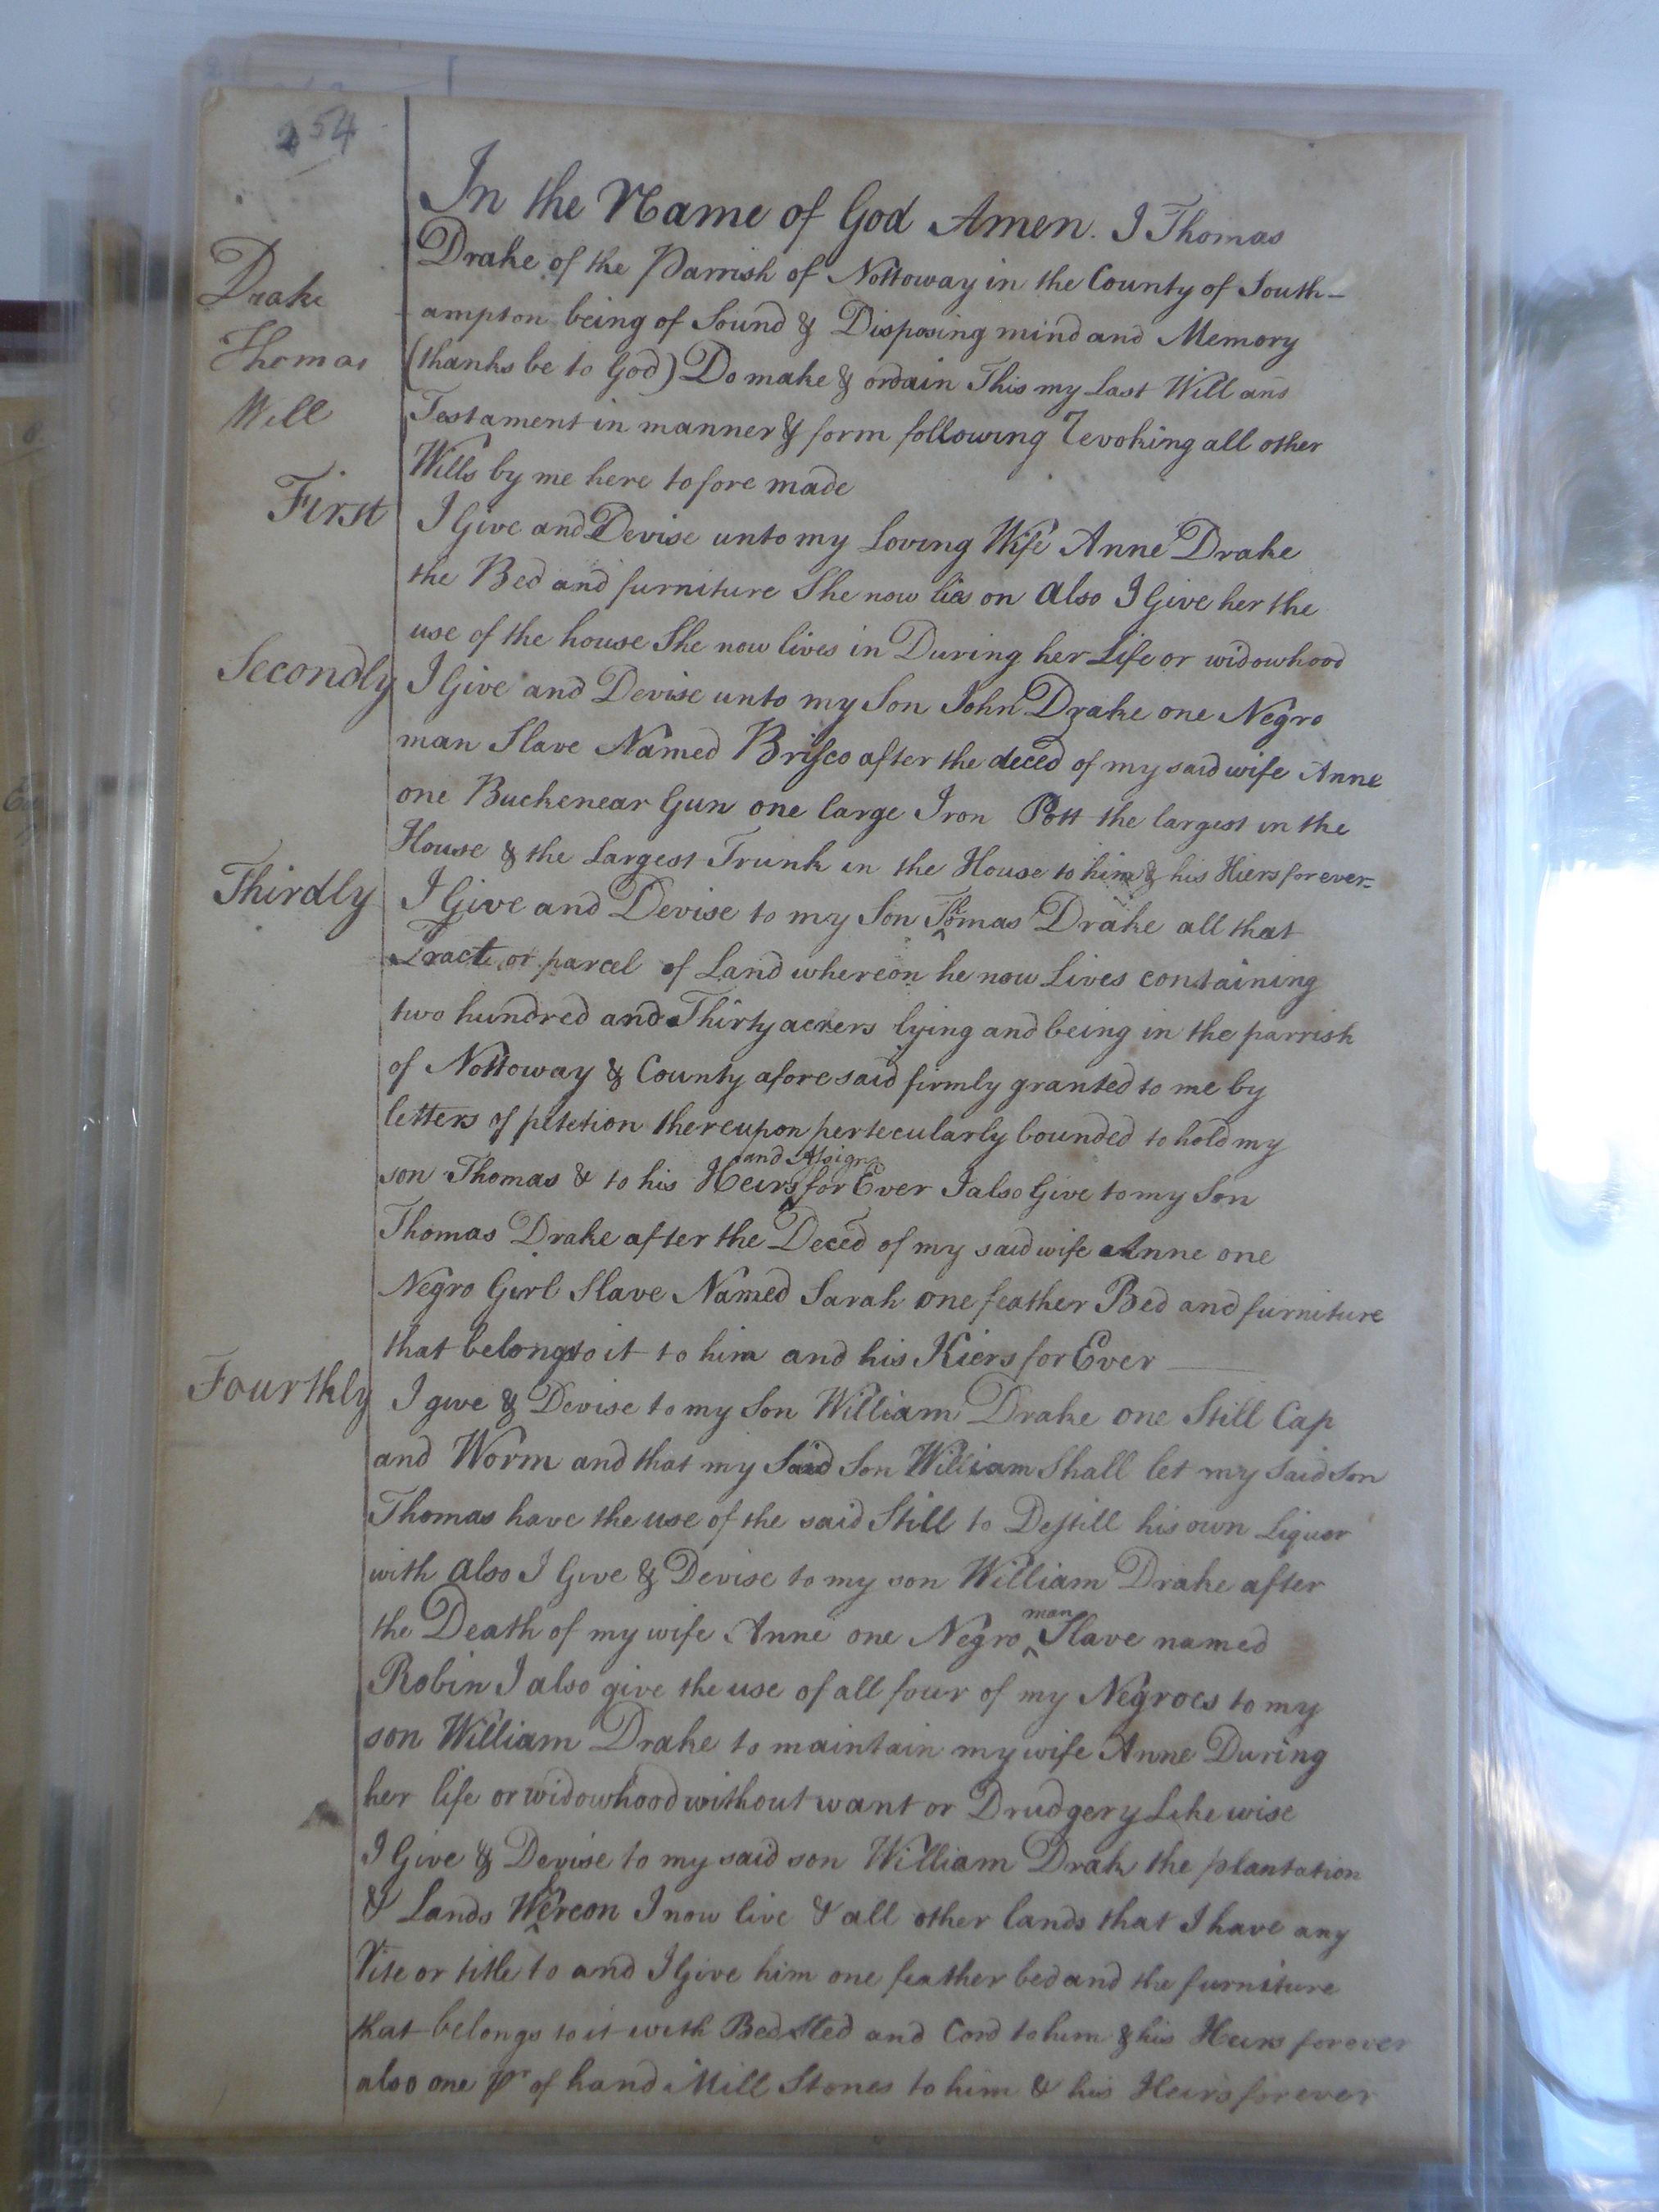 254
In the Name of God Amen. I Thomas
Drake of the Parrish of Nottoway in the County of South-
Drake
ampton being of Sound & Disposing mind and Memory
Thomas
(thanks be to God) Do make & ordain This my Last Will and
Will
Testament in manner & form following Revoking all other
Wills by me here tofore made
First
I Give and Devise unto my Loving Wife Anne Drake
the Bed and furniture She now lies on also I Give her the
use of the house She now lives in During her Life or widowhood
Secondly
I Give and Devise unto my Son John Drake one Negro
man Slave Named Brisco after the deced of my said wife Anne
one Buckenear Gun one large Iron Pott the largest in the
House & the Largest Trunk in the House to him & his Hiers for ever
Thirdly
I Give and Devise to my Son Thomas Drake all that
Tract or parcel of Land whereon he now Lives containing
two hundred and Thirty acrers lying and being in the parrish
of Nottoway & County afore said firmly granted to me by
letters of petetion thereupon pertecularly bounded to hold my
son Thomas & to his Heirs and Assigns for Ever I also Give to my Son
Thomas Drake after the Deced of my said wife Anne one
Negro Girl Slave Named Sarah one feather Bed and furniture
that belongs to it to him and his Hiers for Ever
Fourthly
I give & Devise to my Son William Drake one Still Cap
and Worm and that my Said Son William Shall let my Said Son
Thomas have the use of the said Still to Destill his own Liquor
with also I Give & Devise to my son William Drake after
the Death of my wife Anne one Negro man Slave named
Robin I also give the use of all four of my Negroes to my
son William Drake to maintain my wife Anne During
her life or widowhood without want or Drudgery Likewise
I Give & Devise to my said son William Drak the plantation
& Lands Whereon I now live & all other lands that I have any
Rite or title to and I Give him one feather bed and the furniture
that belongs to it with Bed Sted and Cord to him & his Heirs forever
also one pr of hand Mill Stones to him & his Heirs for ever